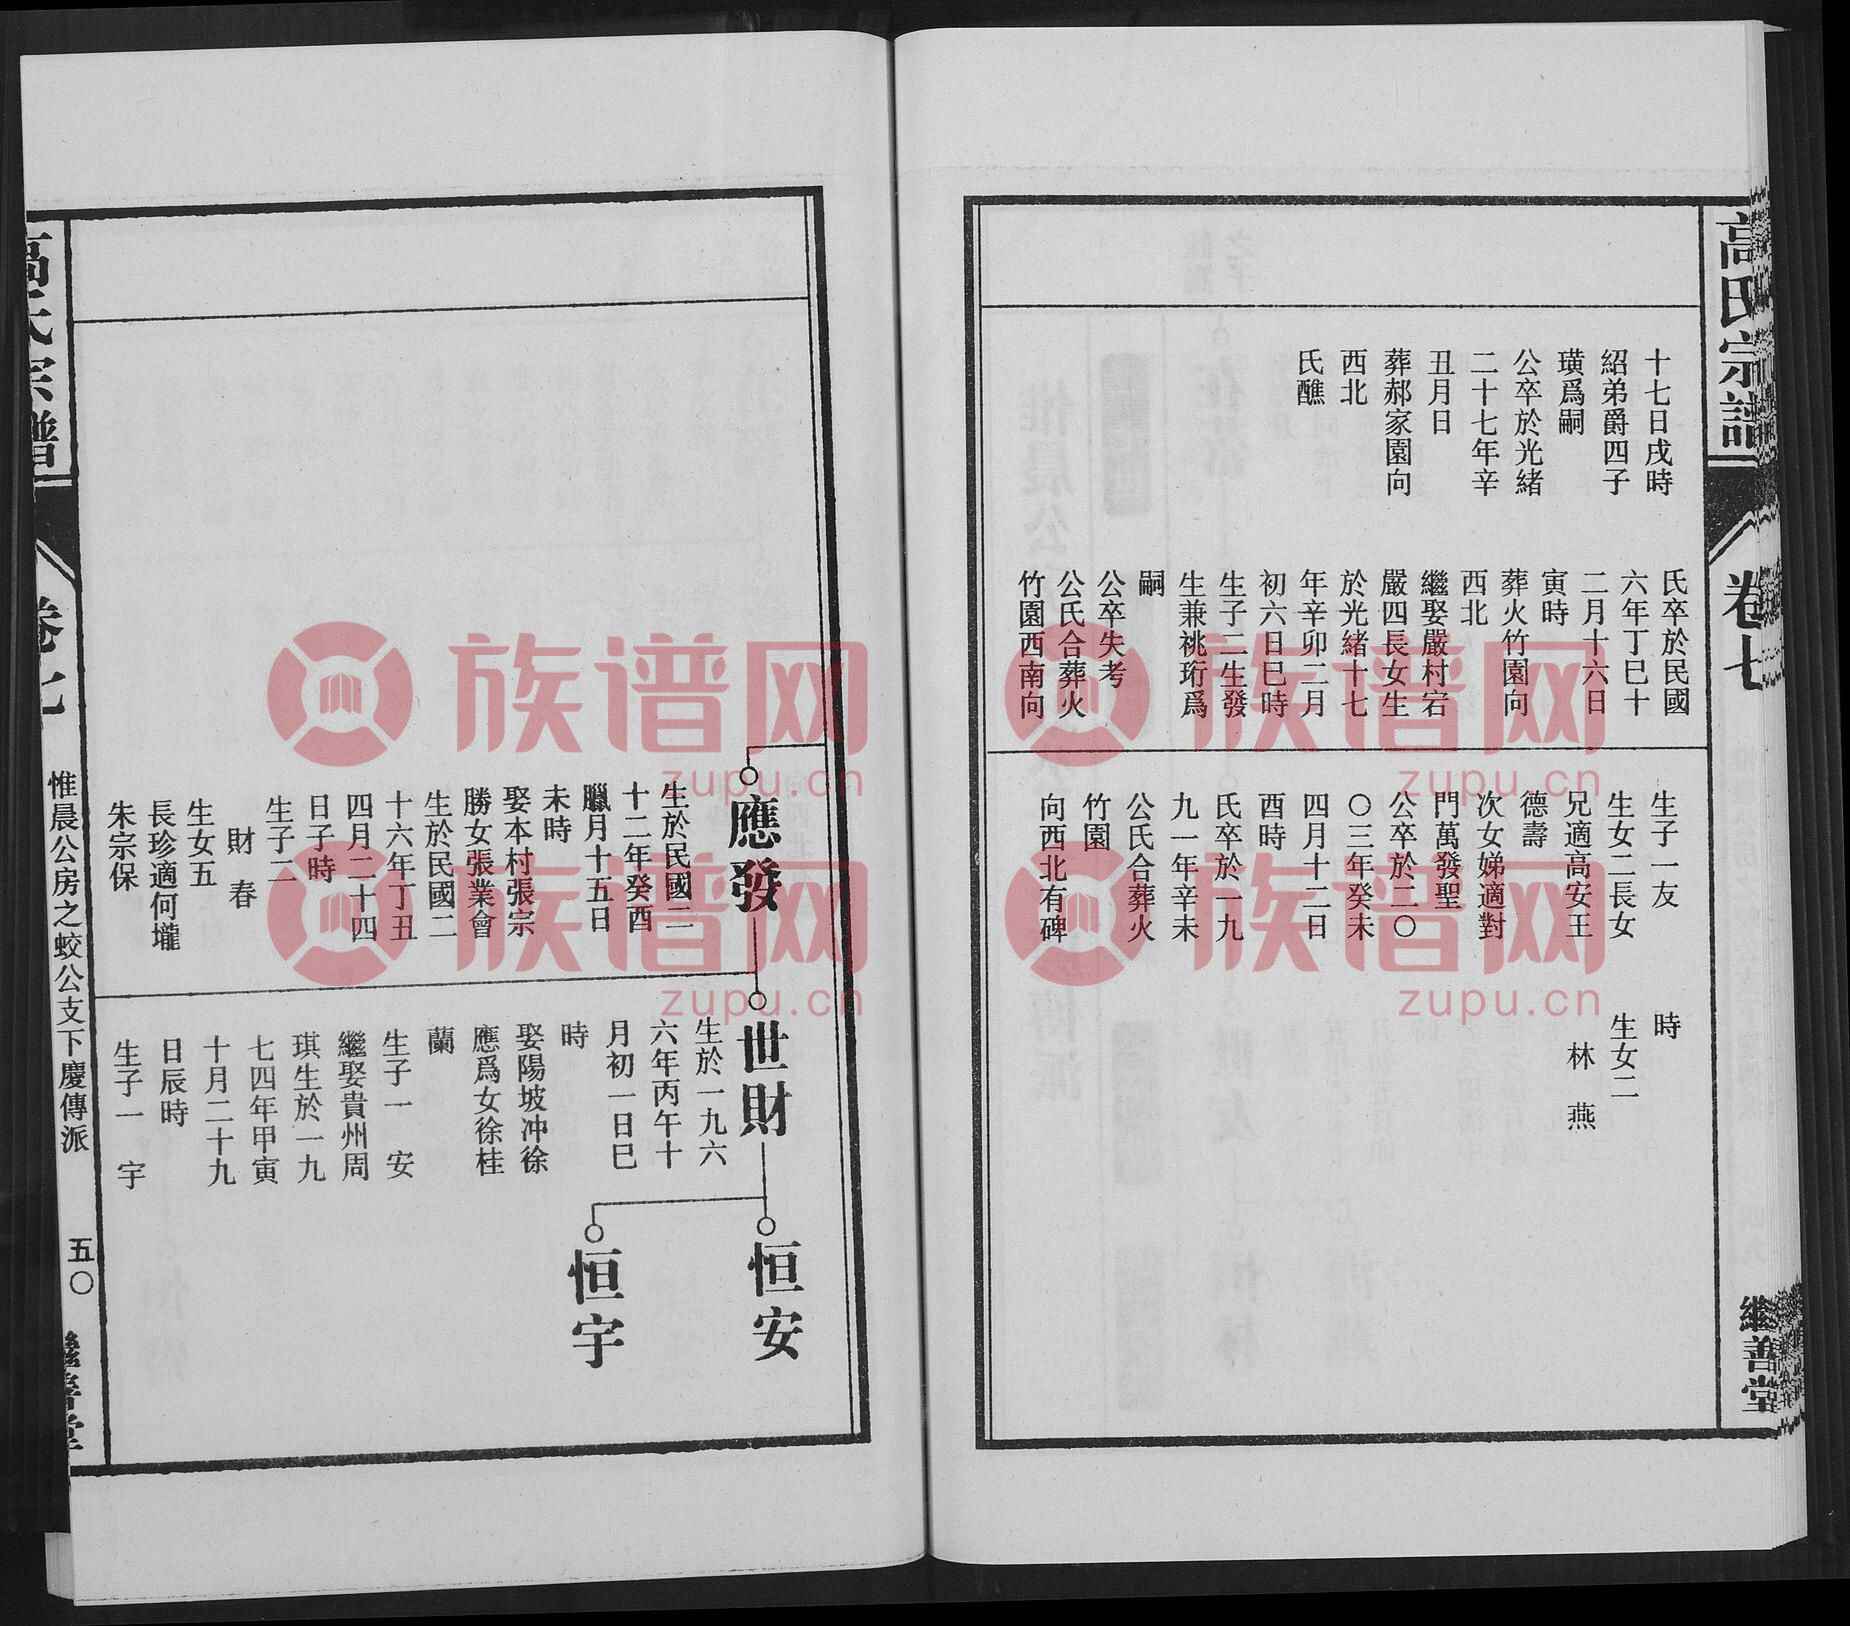 高氏宗譜
卷七
繼善堂
十七日戌時
紹弟爵四子
璜爲嗣
公卒於光緒
二十七年辛
丑月日
葬郝家園向
西北
氏醮
氏卒於民國
六年丁巳十
二月十六日
寅時
葬火竹園向
西北
繼娶嚴村宕
嚴四長女生
於光緒十七
年辛卯二月
初六日巳時
生子二生發
生兼祧珩爲
嗣
公卒失考
公氏合葬火
竹園西南向
生子一友
生女二長女
兄適高安王
德壽
次女娣適對
門萬發聖
公卒於二〇
〇三年癸未
四月十二日
酉時
氏卒於一九
九一年辛未
公氏合葬火
竹園
向西北有碑
時
生女二
林 燕
應發
生於民國二
十二年癸酉
臘月十五日
未時
娶本村張宗
勝女張業會
生於民國二
十六年丁丑
四月二十四
日子時
生子二
財 春
生女五
長珍適何壠
朱宗保
世財
生於一九六
六年丙午十
月初一日巳
時
娶陽坡冲徐
應爲女徐桂
蘭
生子一 安
繼娶貴州周
琪生於一九
七四年甲寅
十月二十九
日辰時
生子一 宇
恒安
恒宇
高氏宗譜
卷七
惟晨公房之蛟公支下慶傳派
五〇
繼善堂
族谱网
zupu.cn
族谱网
zupu.cn
族谱网
zupu.cn
族谱网
zupu.cn